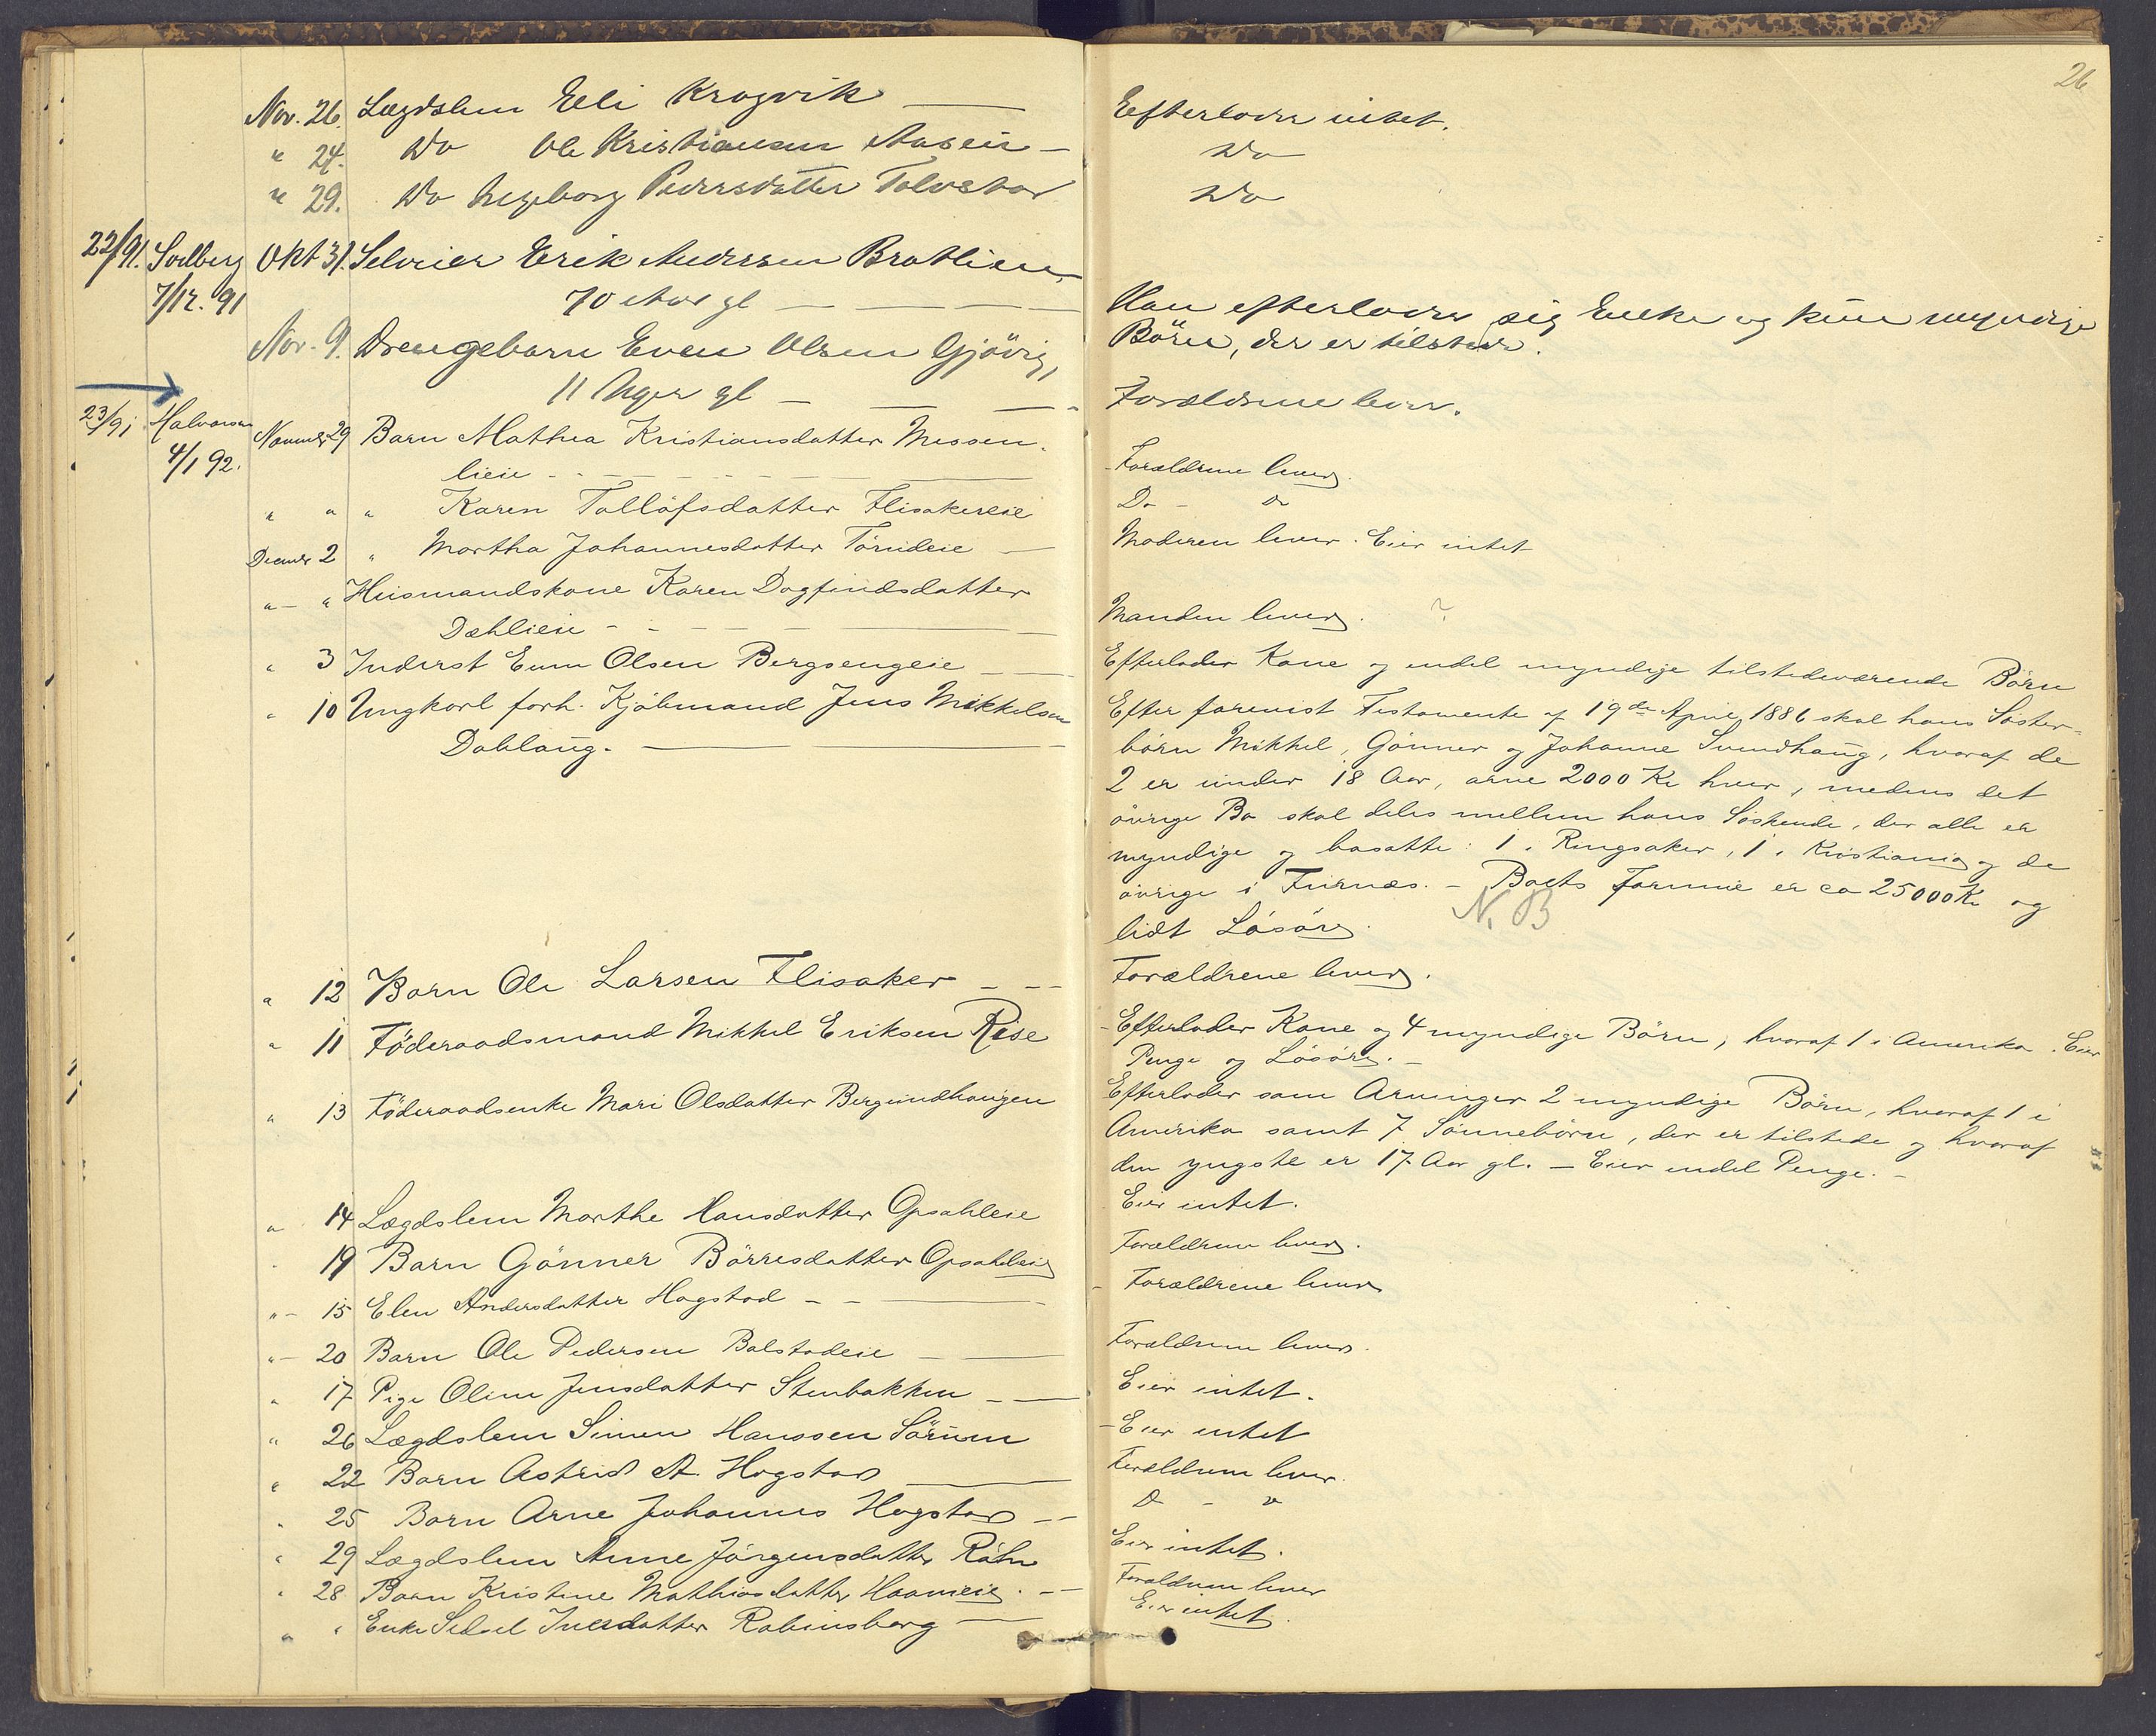 26
Nov. 26. Lægdslem Eli Kragvik — Efterlader intet.
" 24. Do Ole Kristiansen Aaseie — Do
" 29. Do Ingeborg Pedersdatter Tolvstad Do
22/91. Solberg Okt 31. Selveier Erik Andersen Bratlien,
7/12. 91 70 Aar gl — — — Han efterlader sig Enke og kun myndige
Børn, der er tilstede.
Nov. 9. Drengebarn Even Olsen Gjøvig,
11 Uger gl — — — Forældrene lever.
23/91 Halvorsen Novembr 29 Barn Mathea Kristiansdatter Messen-
4/1 92. lieie — Forældrene lever.
" " " Karen Tollöfsdatter Flisakereie D. - o
Decembr 2 " Martha Johannesdatter — Moderen lever. Eier intet
" - " Husmandskone Karen Dagfindsdatter
Dæhlieie - - — Manden lever. ?
" 3 Inderst Even Olsen Bergsengeie — Efterlader Kone og endel myndige tilstedeværende Börn
" 10 Ungkarl forh. Kjøbmand Jens Mikkelsen
Dahlaug. — Efter forevist Testamente af 19de April 1886 skal hans Söster-
börn Mikkel, Gönner og Johanne Svendhaug, hvoraf de
2 er under 18 Aar, arve 2000 Kr hver, medens det
övrige Bo skal deles mellem hans Söskende, der alle er
myndige og bosatte: 1 i Ringsaker, 1 i Kristiania og de
övrige i Furnæs. - Boets Formue er ca 25000 Kr og
lidt Lösöre. N.B
" 12 Barn Ole Larsen Flisaker - — Forældrene lever.
" 11 Föderaadsmand Mikkel Eriksen Rise - Efterlader Kone og 4 myndige Börn, hvoraf 1 i Amerika. Eier
Penge og Lösöre. —
" 13 Föderaadsenke Mari Olsdatter Bergundhaugen Efterlader som Arvinger 2 myndige Börn, hvoraf 1 i
Amerika samt 7 Sönnebörn, der er tilstede og hvoraf
den yngste er 17 Aar gl. — Eier endel Penge. —
" 14 Lægdslem Marthe Hansdatter Opsahleie Eier intet.
" 19 Barn Gönner Börresdatter Opsahleie Forældrene lever.
" - 15 Elen Andersdatter Hagstad - - — Forældrene lever
" - 20 Barn Ole Pedersen Balstadeie — Forældrene lever.
" 17 Pige Oline Jensdatter Stenbakken — Eier intet.
" 26 Lægdslem Simen Hanssen Sörum - Eier intet
" 22 Barn Astrid A. Hagstad — Forældrene lever.
" 25 Barn Arne Johannes Hagstad — D - o
" 29 Lægdslem Anne Jörgensdatter Eier intet.
" 28 Barn Kristine Mathiasdatter — Forældrene lever
" " Enke Sidsel Iversdatter Robinsberg — Eier intet.